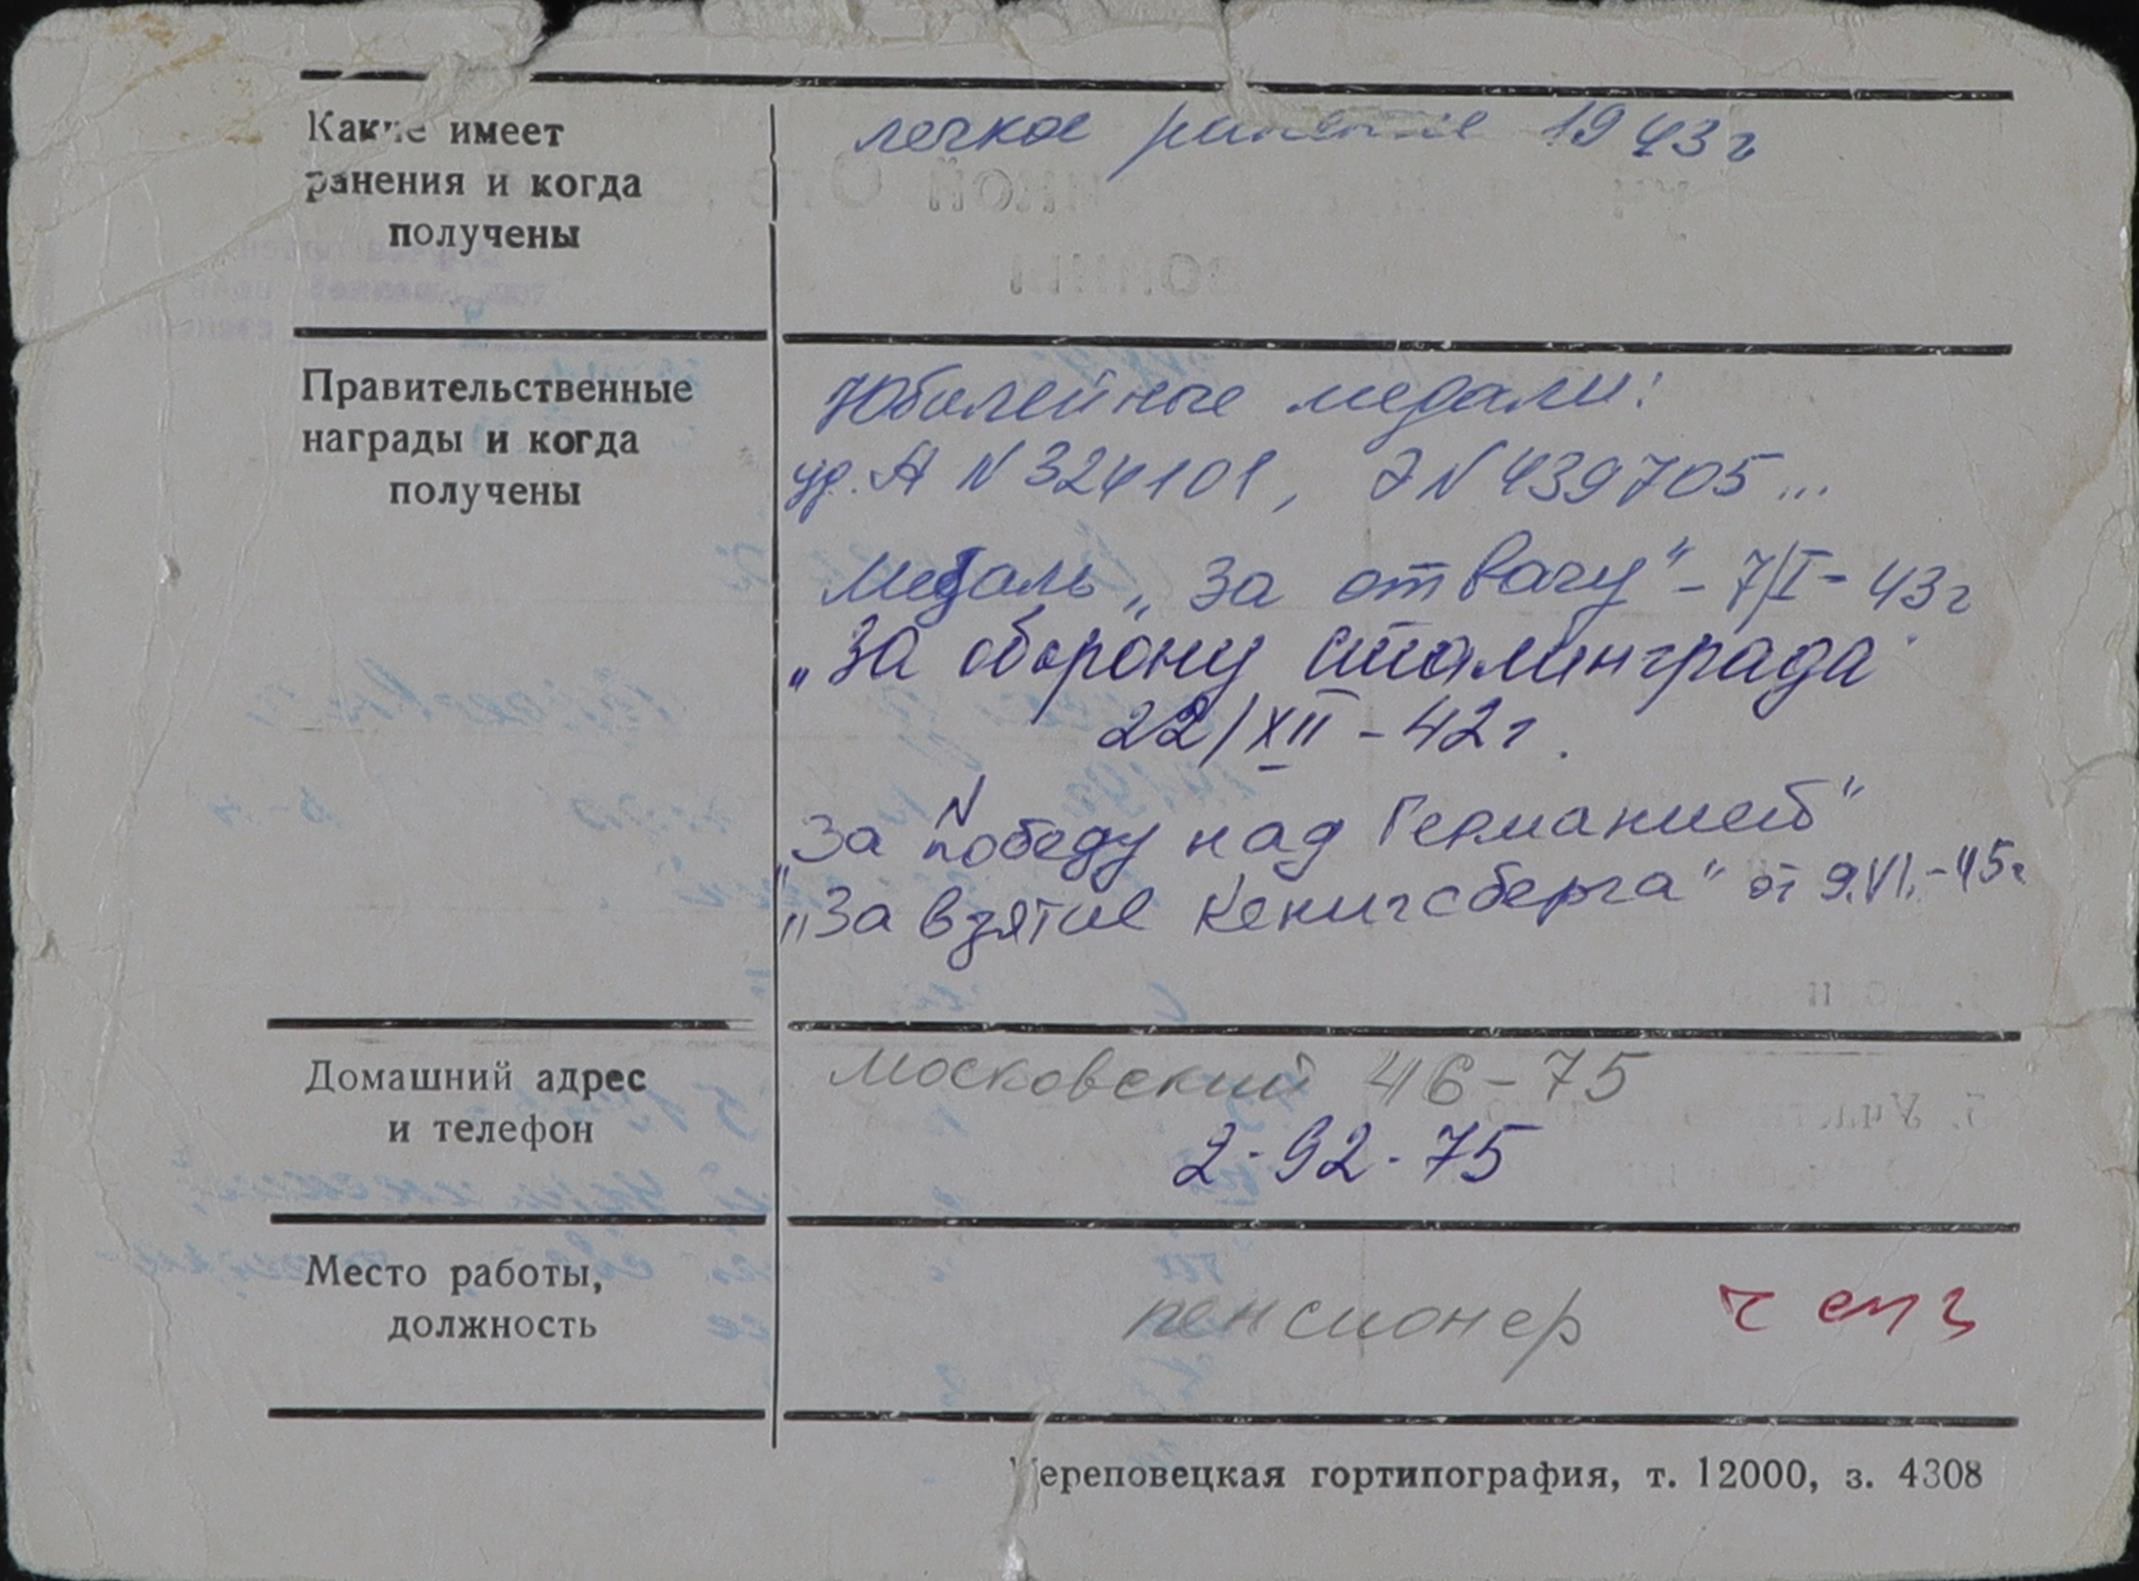 Какие имеет
ранения и когда
получены
легкое ранение 1943г
Правительственные
награды и когда
получены
Юбилейные медали:
уд. А N 324101, Э N 439705...
Медаль „За отвагу" - 7/I - 43г
„За оборону Сталинграда"
22/XII - 42г.
„За победу над Германией"
„За взятие Кенигсберга" от 9.VI.-45г
Домашний адрес
и телефон
Московский 46-75
2-92-75
Место работы,
должность
пенсионер
Череповецкая гортипография, т. 12000, з. 4308